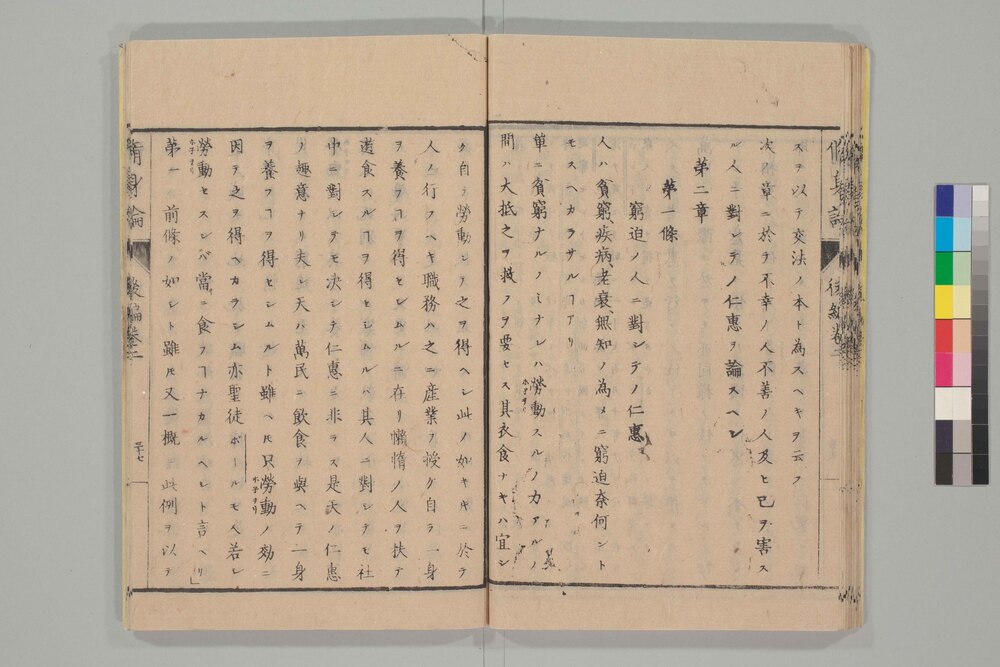 スヲ以テ交法ノ本ト為スヘキヲ云フ
次ノ章ニ於テ不幸ノ人不善ノ人及ヒ己ヲ害ス
ル人ニ對シテノ仁惠ヲ論スヘシ
第二章
第一條
窮迫ノ人ニ對シテノ仁惠
人ハ貧窮、疾病、老衰、無知ノ為メニ窮迫奈何ントモスヘカラサルヿアリ
單ニ貧窮ナルノミナレハ勞動スルノ力アルノ
間ハ大抵之ヲ救フヲ要セス其衣食ナキハ宜シ
ク自ラ勞動シテ之ヲ得ヘシ此ノ如キキニ於テ
人ノ行フヘキ職務ハ之ニ産業ヲ授ケ自ラ一身
ヲ養フヿヲ得セシムルニ在リ懶惰ノ人ヲ扶テ
遊食スルヿヲ得セシムルハ其人ニ對シテモ社
中ニ對シテモ决シテ仁惠ニ非ラス是天ノ仁惠
ノ趣意ナリ夫レ天ハ萬民ニ飲食ヲ與ヘテ一身
ヲ養フヿヲ得セシムルト雖ヘㇳモ只勞動ノ効ニ
因テ之ヲ得ヘカラシム亦聖徒ポールモ人若シ
勞動セスンバ當ニ食フヿナカルヘシト言ヘリ」
第一 前條ノ如シト雖ㇳモ又一概ニ此例ヲ以テ
脩身論 後編卷二
三十七